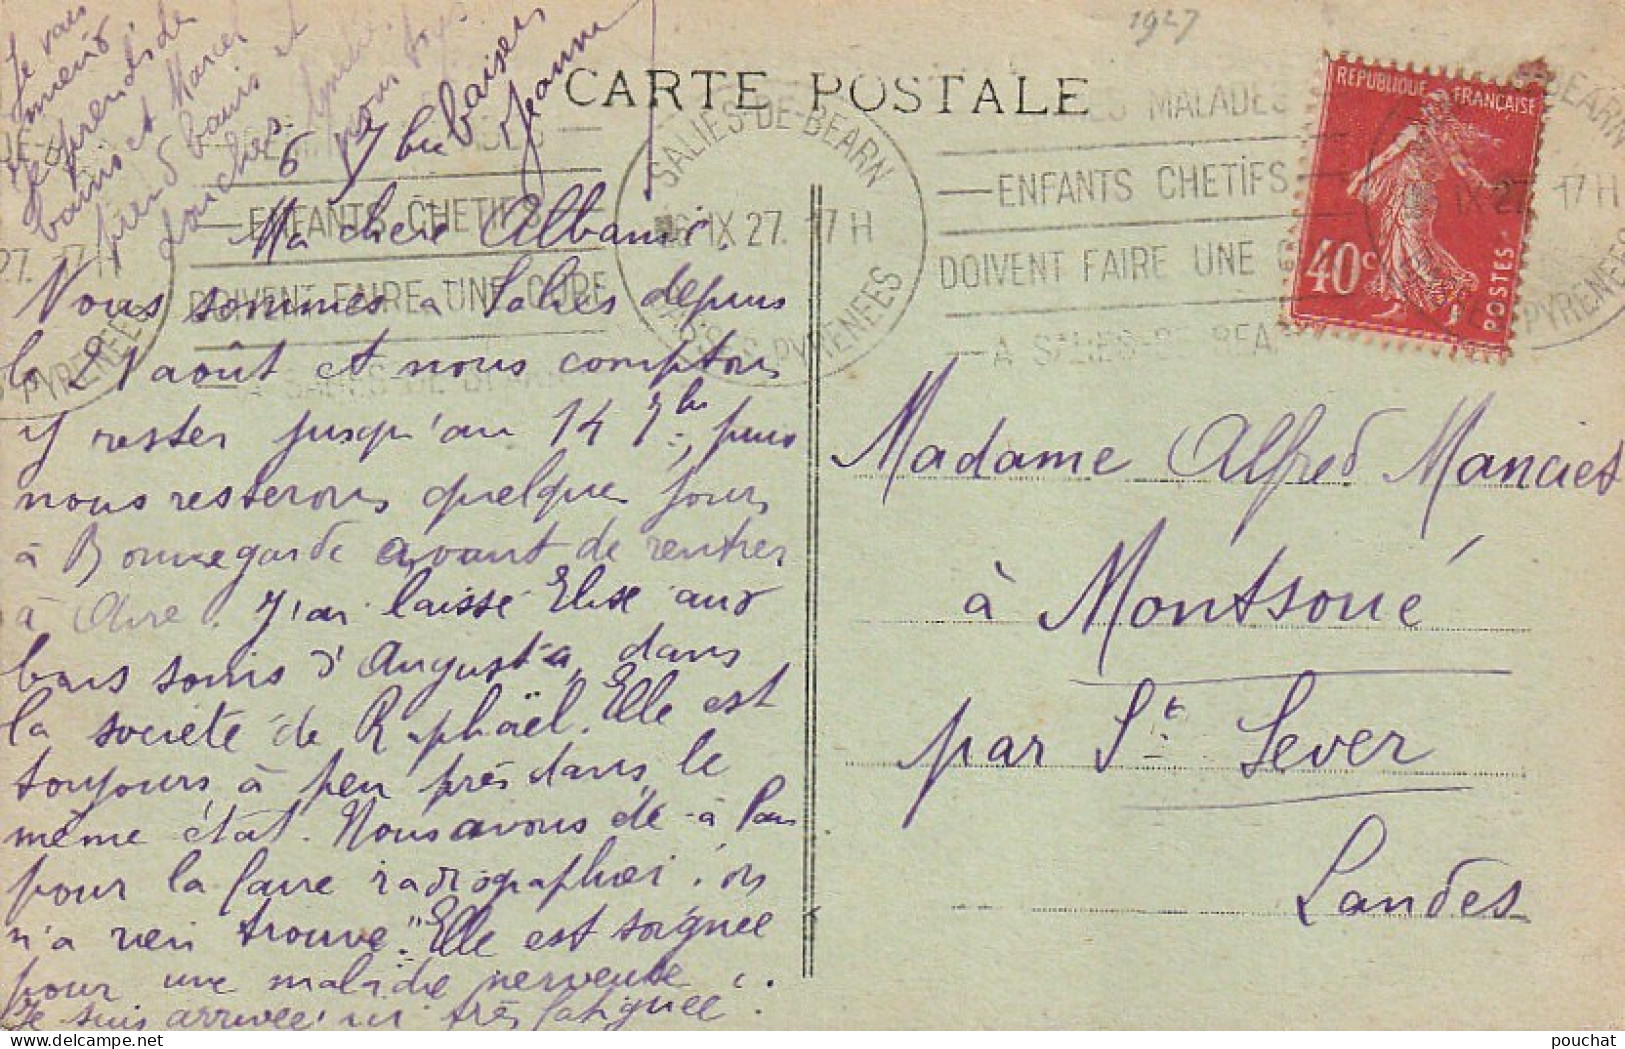 1927
CARTE POSTALE
REPUBLIQUE FRANÇAISE
40c
POSTES
SALIES-DE-BEARN
6 IX 27. 17 H
BSES PYRENEES
MALADES
ENFANTS CHETIFS
DOIVENT FAIRE UNE CURE
A SALIES-DE-BEARN
6 7bre
Ma chère Albanie.
Nous sommes à Salies depuis
le 21 août et nous comptons
y rester jusqu'au 14 7bre, puis
nous resterons quelques jours
à Bonnegarde avant de rentrer
à Aire. J'ai laissé Elise aux
bons soins d'Augusta, dans
la société de Raphaël. Elle est
toujours à peu près dans le
même état. Nous avons été à Pau
pour la faire radiographier; on
n'a rien trouvé. Elle est soignée
pour une maladie nerveuse.
Je suis arrivée ici très fatiguée.
Je vais
mieux
Je prends de
bains et Marcel
prend bains et
douches.
baisers
Jeanne
Madame Alfred Manciet
à Montsoué
par St Sever
Landes
pouchat